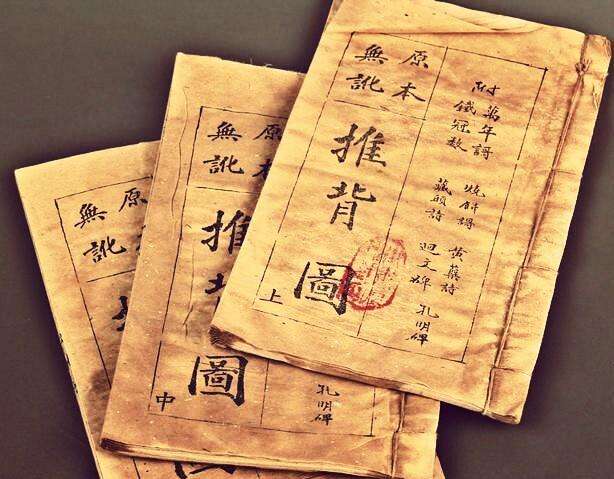 附
萬年謌 燒餅謌 黃蘗詩
鐵冠数 藏頭詩 迴文碑
孔明碑
原本
無訛
推背圖
上
孔明碑
原本
無訛
推背圖
中
原
無訛